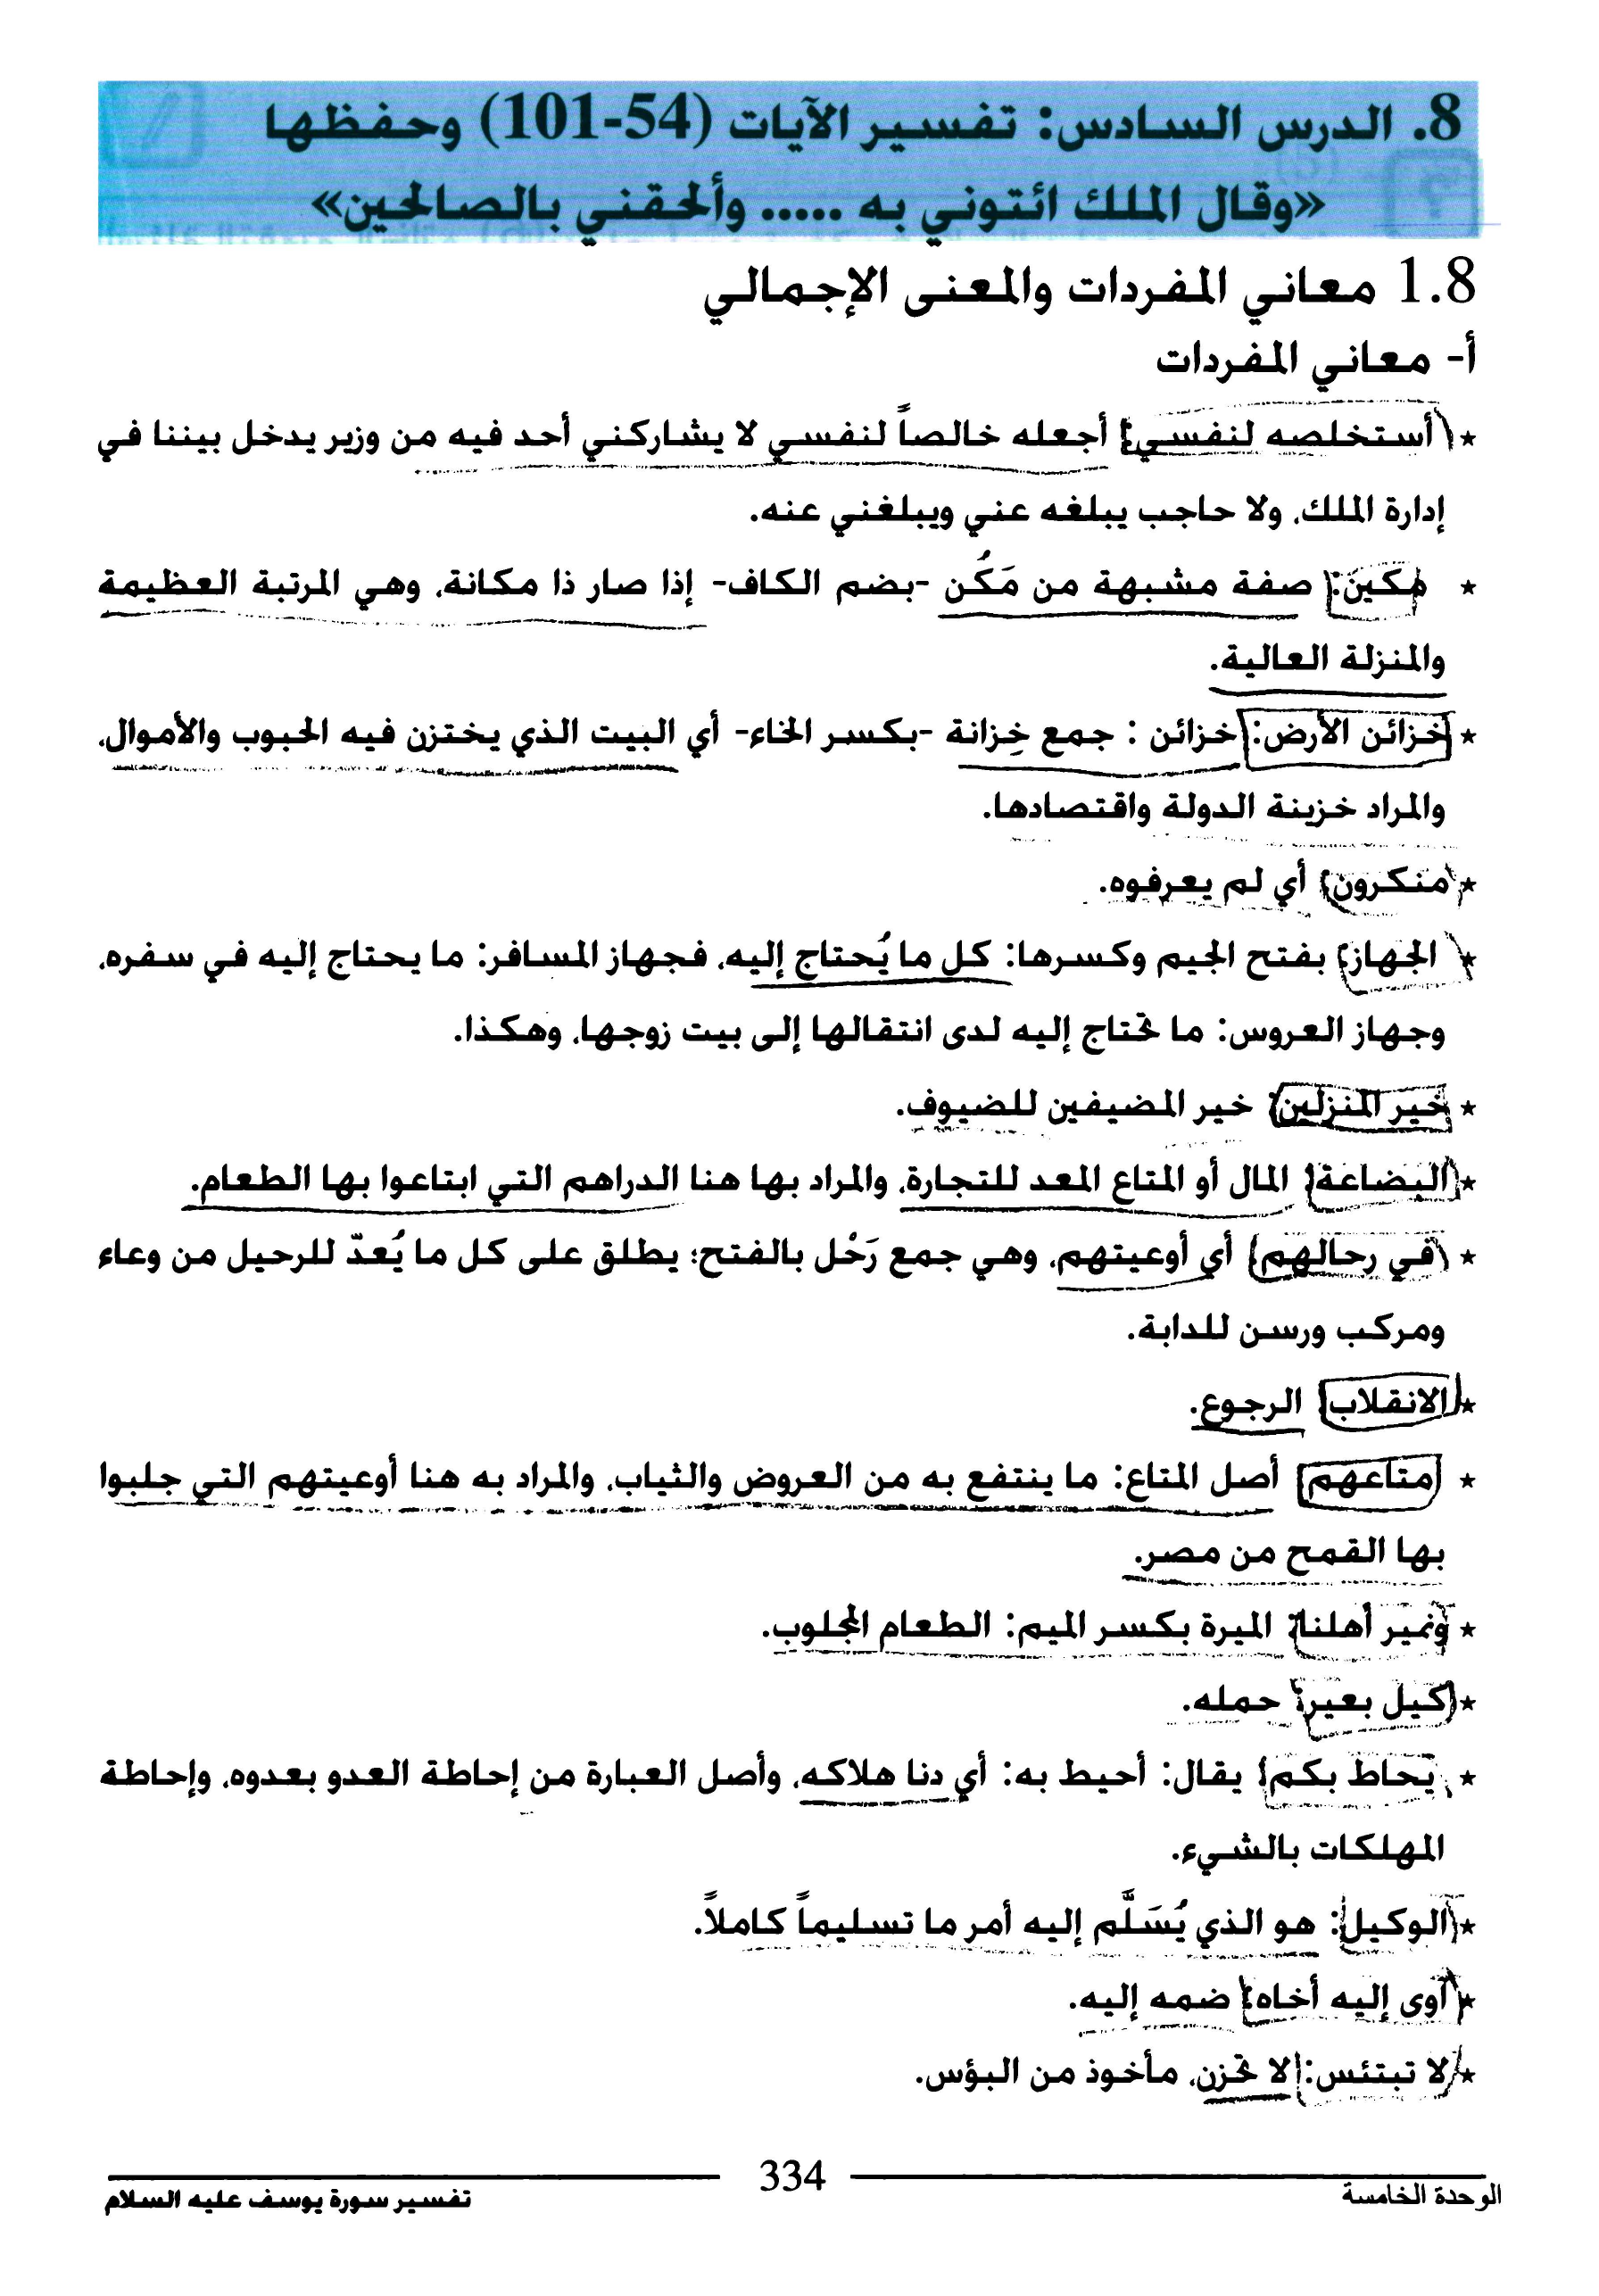 8. الدرس السادس: تفسير الآيات (54-101) وحفظها
«وقال الملك ائتوني به ..... وألحقني بالصالحين»
1.8 معاني المفردات والمعنى الإجمالي
أ- معاني المفردات
* أستخلصه لنفسي: أجعله خالصاً لنفسي لا يشاركني أحد فيه من وزير يدخل بيننا في
إدارة الملك، ولا حاجب يبلغه عني ويبلغني عنه.
* مكين: صفة مشبهة من مَكُن -بضم الكاف- إذا صار ذا مكانة، وهي المرتبة العظيمة
والمنزلة العالية.
* خزائن الأرض: خزائن : جمع خِزانة -بكسر الخاء- أي البيت الذي يختزن فيه الحبوب والأموال،
والمراد خزينة الدولة واقتصادها.
* منكرون: أي لم يعرفوه.
* الجهاز: بفتح الجيم وكسرها: كل ما يُحتاج إليه، فجهاز المسافر: ما يحتاج إليه في سفره،
وجهاز العروس: ما تحتاج إليه لدى انتقالها إلى بيت زوجها، وهكذا.
* خير المنزلين: خير المضيفين للضيوف.
* البضاعة: المال أو المتاع المعد للتجارة، والمراد بها هنا الدراهم التي ابتاعوا بها الطعام.
* في رحالهم: أي أوعيتهم، وهي جمع رَحْل بالفتح؛ يطلق على كل ما يُعدّ للرحيل من وعاء
ومركب ورسن للدابة.
* الانقلاب: الرجوع.
* متاعهم: أصل المتاع: ما ينتفع به من العروض والثياب، والمراد به هنا أوعيتهم التي جلبوا
بها القمح من مصر.
* ونمير أهلنا: الميرة بكسر الميم: الطعام المجلوب.
* كيل بعير: حمله.
* يحاط بكم: يقال: أحيط به: أي دنا هلاكه، وأصل العبارة من إحاطة العدو بعدوه، وإحاطة
المهلكات بالشيء.
* الوكيل: هو الذي يُسَلَّم إليه أمر ما تسليماً كاملاً.
* آوى إليه أخاه: ضمه إليه.
* لا تبتئس: لا تحزن، مأخوذ من البؤس.
الوحدة الخامسة
334
تفسير سورة يوسف عليه السلام